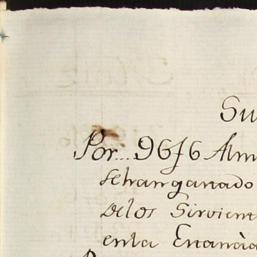 Su
Por... 96f6 Alm
se han ganado
de los Sirvient
en la Enana